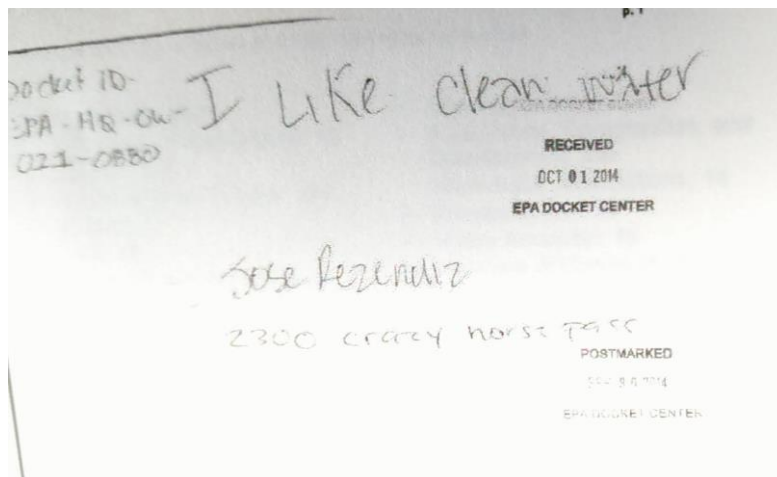 p. 1
Docket ID
EPA-HQ-OW-
021-0880
I Like clean water
EPA DOCKET CENTER
RECEIVED
OCT 01 2014
EPA DOCKET CENTER
Jose Rezendiz
2300 crazy horse Pass
POSTMARKED
2014
EPA DOCKET CENTER